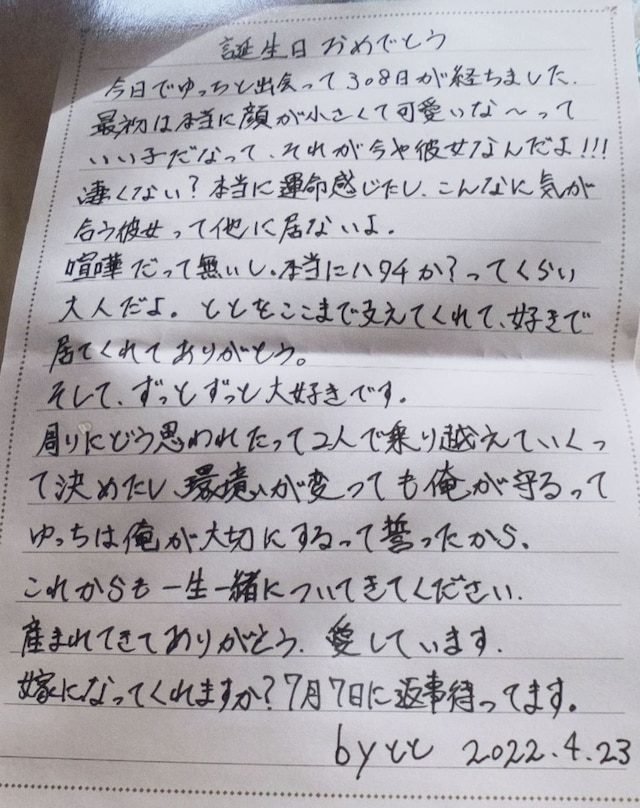 誕生日おめでとう
今日でゆっちと出会って308日が経ちました.
最初は本当に顔が小さくて可愛いな〜って
いい子だなって、それが今や彼女なんだよ!!!
凄くない?本当に運命感じたし、こんなに気が
合う彼女って他に居ないよ。
喧嘩だって無いし、本当にハタチか?ってくらい
大人だよ。ととをここまで支えてくれて、好きで
居てくれてありがとう。
そして、ずっとずっと大好きです。
周りにどう思われたって2人で乗り越えていくっ
て決めたし、環境が変っても俺が守るって
ゆっちは俺が大切にするって誓ったから、
これからも一生一緒についてきてください.
産まれてきてありがとう. 愛しています.
嫁になってくれますか?7月7日に返事待ってます。
byとと 2022.4.23